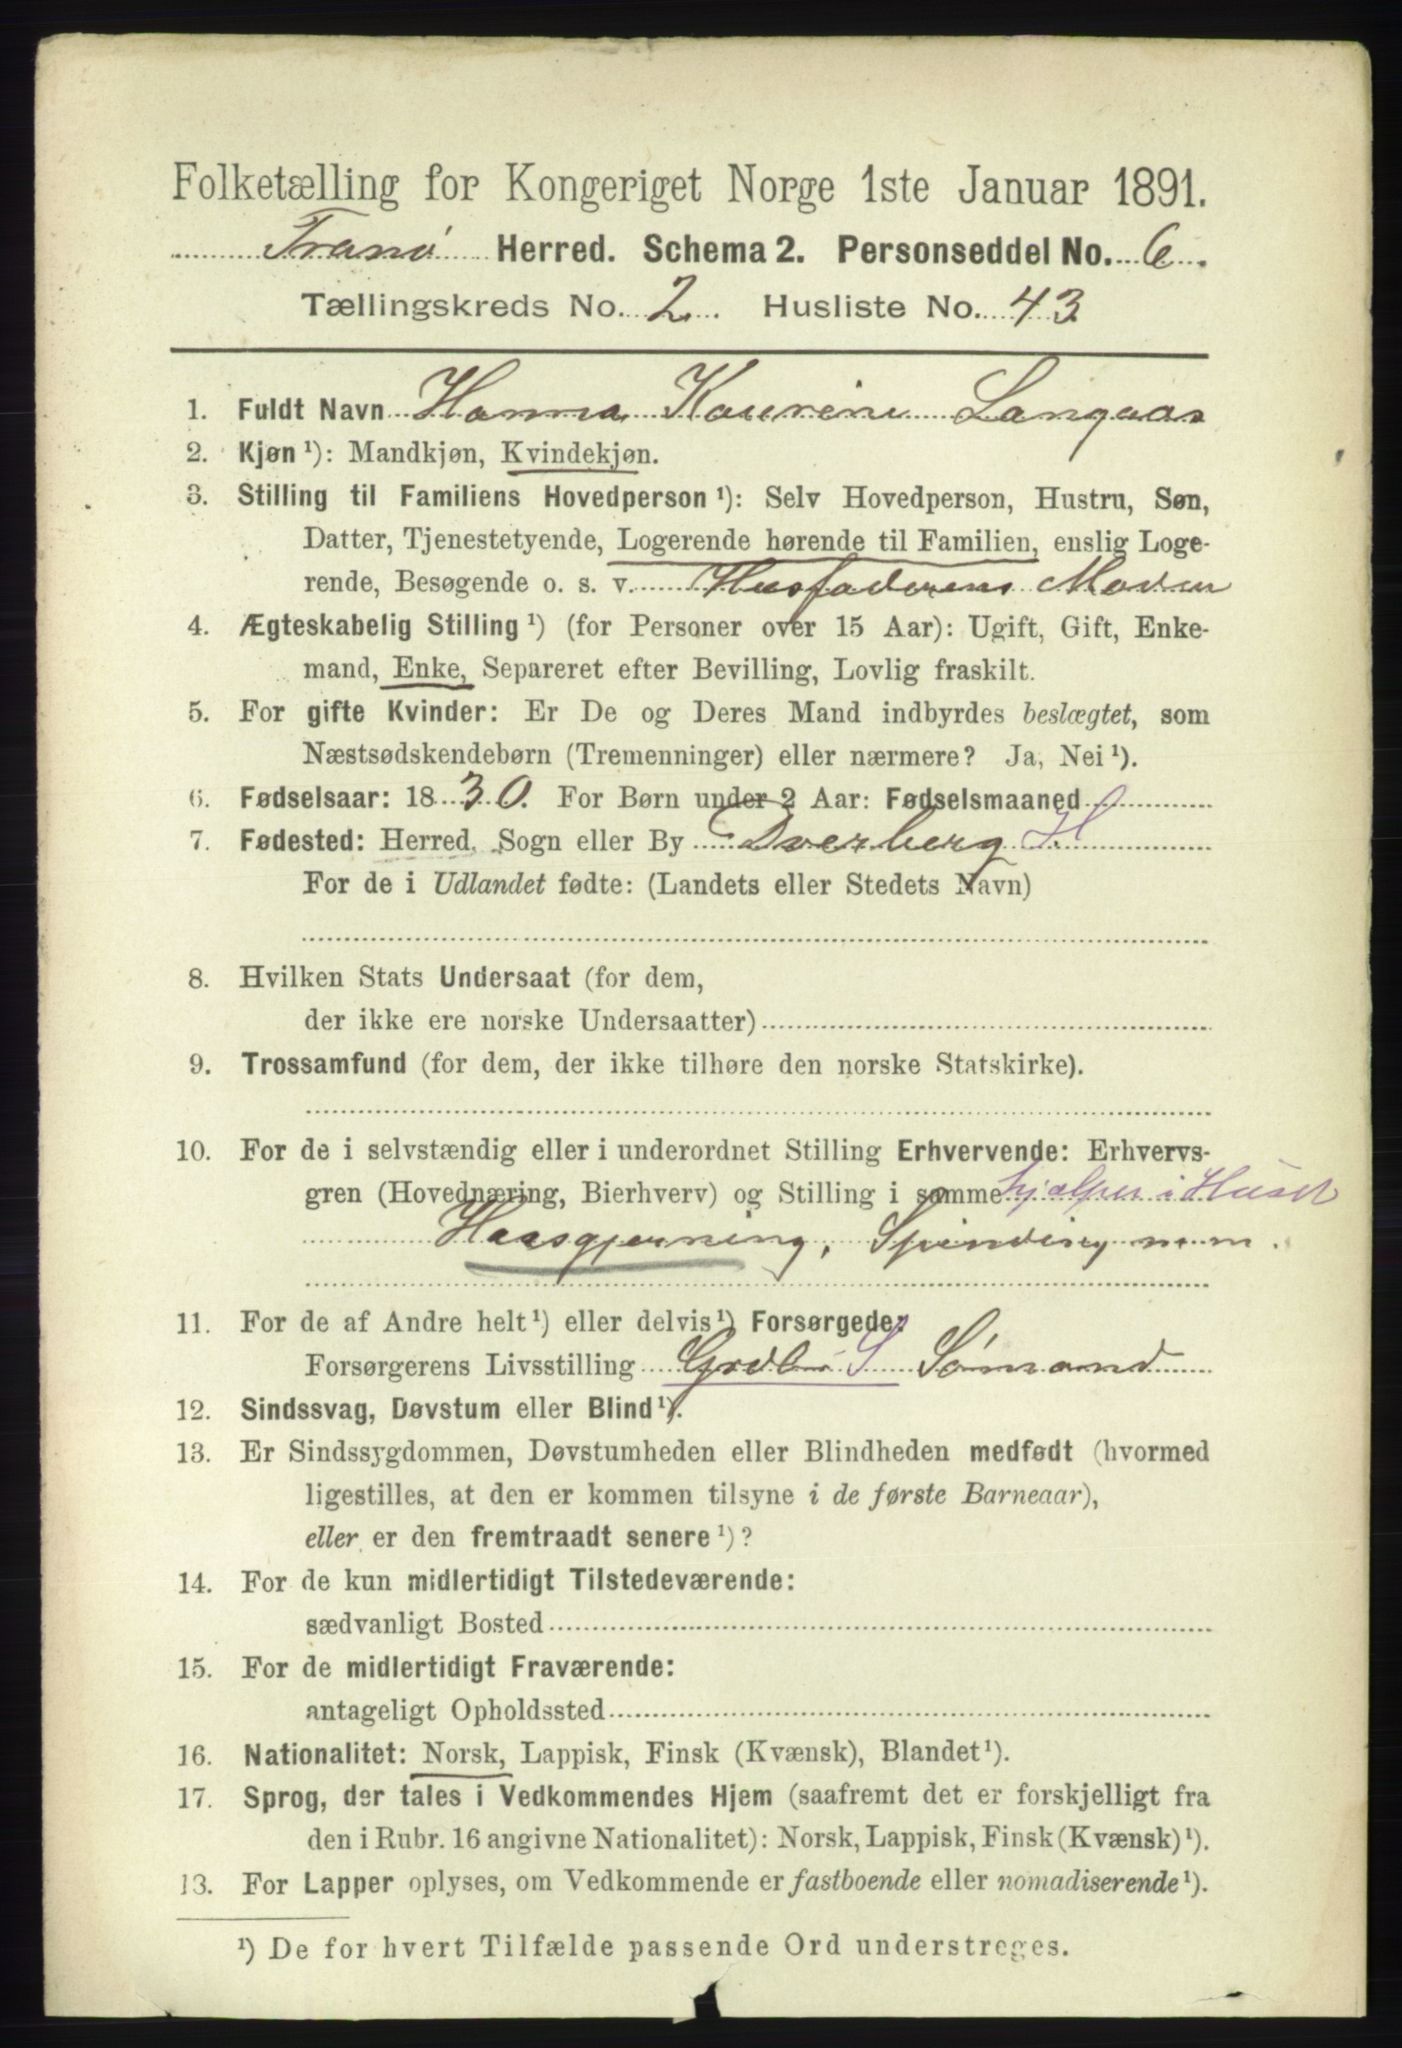 Folketælling for Kongeriget Norge 1ste Januar 1891.
Tranø Herred. Schema 2. Personseddel No. 6.
Tællingskreds No. 2. Husliste No. 43
1. Fuldt Navn Hanna Kaurine Langaas
2. Kjøn ¹): Mandkjøn, Kvindekjøn.
3. Stilling til Familiens Hovedperson ¹): Selv Hovedperson, Hustru, Søn,
Datter, Tjenestetyende, Logerende hørende til Familien, enslig Loge-
rende, Besøgende o. s. v. Husfaderens Moder
4. Ægteskabelig Stilling ¹) (for Personer over 15 Aar): Ugift, Gift, Enke-
mand, Enke, Separeret efter Bevilling, Lovlig fraskilt.
5. For gifte Kvinder: Er De og Deres Mand indbyrdes beslægtet, som
Næstsødskendebørn (Tremenninger) eller nærmere? Ja, Nei ¹).
6. Fødselsaar: 1830. For Børn under 2 Aar: Fødselsmaaned
7. Fødested: Herred, Sogn eller By Dverberg H
For de i Udlandet fødte: (Landets eller Stedets Navn)
8. Hvilken Stats Undersaat (for dem,
der ikke ere norske Undersaatter)
9. Trossamfund (for dem, der ikke tilhøre den norske Statskirke).
10. For de i selvstændig eller i underordnet Stilling Erhvervende: Erhvervs-
gren (Hovednæring, Bierhverv) og Stilling i samme hjælper i Huset
Huusgjerning, Spinding m m.
11. For de af Andre helt ¹) eller delvis ¹) Forsørgede:
Forsørgerens Livsstilling Grdbr S Sømand
12. Sindssvag, Døvstum eller Blind ¹).
13. Er Sindssygdommen, Døvstumheden eller Blindheden medfødt (hvormed
ligestilles, at den er kommen tilsyne i de første Barneaar),
eller er den fremtraadt senere ¹)?
14. For de kun midlertidigt Tilstedeværende:
sædvanligt Bosted
15. For de midlertidigt Fraværende:
antageligt Opholdssted
16. Nationalitet: Norsk, Lappisk, Finsk (Kvænsk), Blandet ¹).
17. Sprog, der tales i Vedkommendes Hjem (saafremt det er forskjelligt fra
den i Rubr. 16 angivne Nationalitet): Norsk, Lappisk, Finsk (Kvænsk) ¹).
13. For Lapper oplyses, om Vedkommende er fastboende eller nomadiserende ¹).
¹) De for hvert Tilfælde passende Ord understreges.